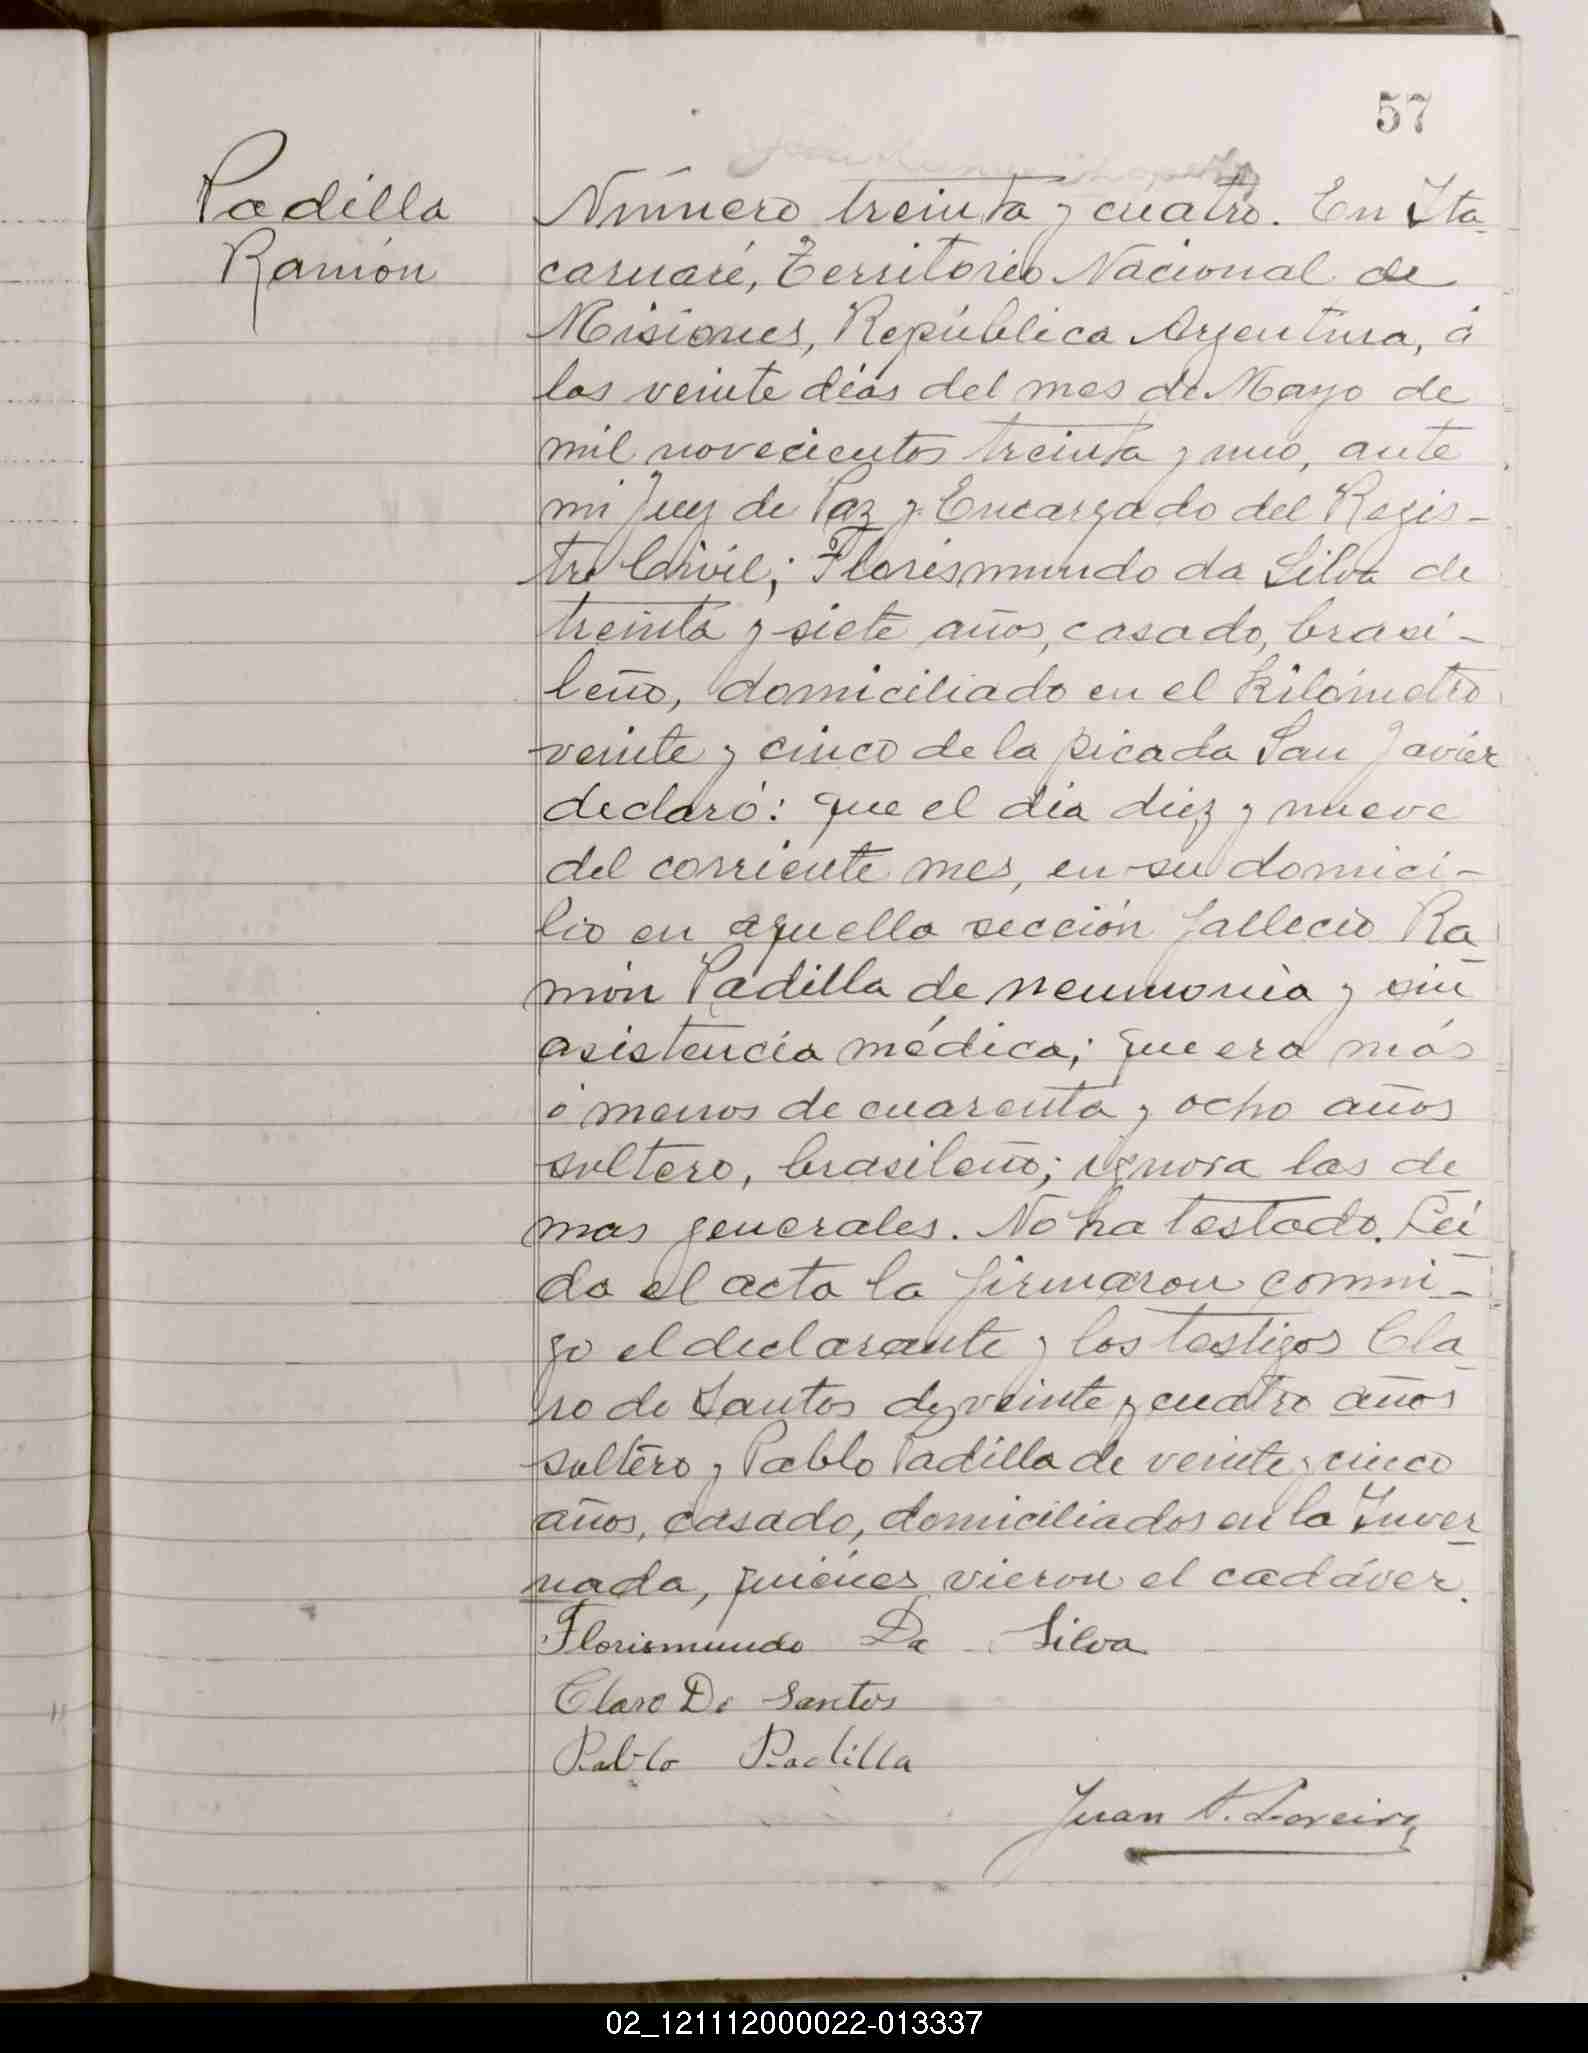 57
Padilla
Ramón
Número treinta y cuatro. En Ita
caruaré, Territorio Nacional de
Misiones, República Argentina, á
los veinte días del mes de Mayo de
mil novecientos treinta y uno, ante
mi Juez de Paz y Encargado del Regis-
tro Civil; Florismundo da Silva de
treinta y siete años, casado, brasi-
leño, domiciliado en el kilómetro
veinte y cinco de la picada San Javier
declaró: que el día diez y nueve
del corriente mes, en su domici-
lio en aquella sección falleció Ra
món Padilla de neumonía y sin
asistencia médica; que era más
ó menos de cuarenta y ocho años
soltero, brasileño; ignora las de
mas generales. No ha testado. Leí
da el acta la firmaron conmi-
go el declarante y los testigos Cla
ro de Santos de veinte y cuatro años
soltero y Pablo Padilla de veinte y cinco
años, casado, domiciliados en la Inver
nada, quiénes vieron el cadáver.
Florismundo Da Silva
Claro De Santos
Pablo Padilla
Juan A.
02_121112000022-013337